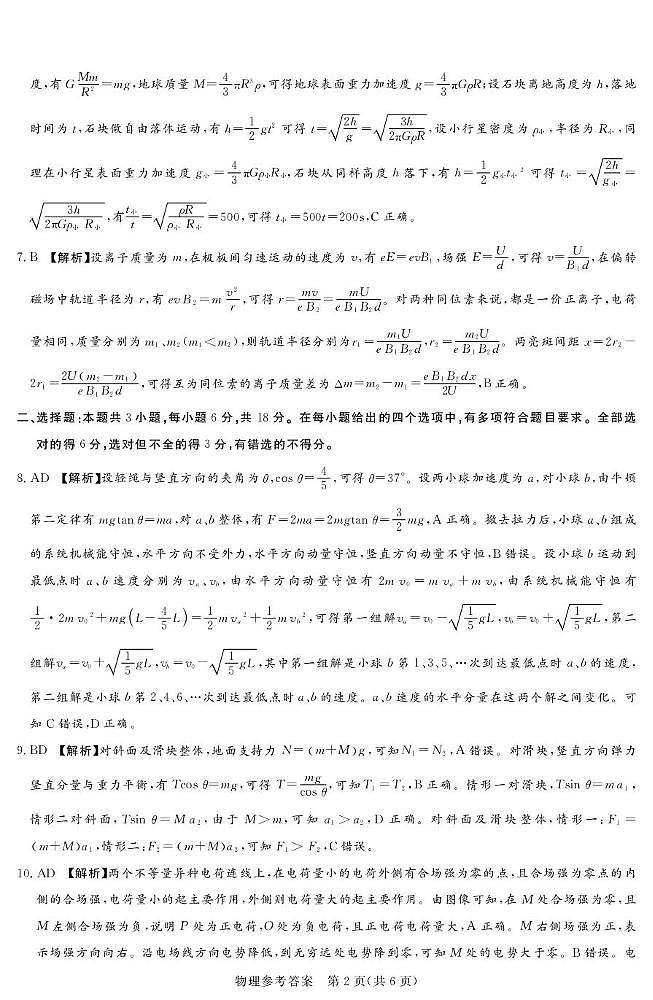 度,有 G\frac{Mm}{R^2}=mg,地球质量 M=\frac{4}{3}πR^3ρ,可得地球表面重力加速度 g=\frac{4}{3}πGρR;设石块离地高度为 h,落地
时间为 t,石块做自由落体运动,有 h=\frac{1}{2}gt^2 可得 t=\sqrt{\frac{2h}{g}}=\sqrt{\frac{3h}{2πGρR}},设小行星密度为 ρ_小,半径为 R_小,同
理在小行星表面重力加速度 g_小=\frac{4}{3}πGρ_小R_小,石块从同样高度 h 落下,有 h=\frac{1}{2}g_小t_小^2 可得 t_小=\sqrt{\frac{2h}{g_小}}=
\sqrt{\frac{3h}{2πGρ_小 R_小}},有\frac{t_小}{t}=\sqrt{\frac{ρR}{ρ_小 R_小}}=500,可得 t_小=500t=200s,C 正确。
7. B 【解析】设离子质量为 m,在极板间匀速运动的速度为 v,有 eE=evB_1,场强 E=\frac{U}{d},可得 v=\frac{U}{B_1d},在偏转
磁场中轨道半径为 r,有 evB_2=m\frac{v^2}{r},可得 r=\frac{mv}{eB_2}=\frac{mU}{eB_1B_2d}。对两种同位素来说,都是一价正离子,电荷
量相同,质量分别为 m_1、m_2(m_1<m_2),则轨道半径分别为r_1=\frac{m_1U}{eB_1B_2d},r_2=\frac{m_2U}{eB_1B_2d}。两亮斑间距 x=2r_2-
2r_1=\frac{2U(m_2-m_1)}{eB_1B_2d},可得互为同位素的离子质量差为 Δm=m_2-m_1=\frac{eB_1B_2dx}{2U},B 正确。
二、选择题:本题共 3 小题,每小题 6 分,共 18 分。在每小题给出的四个选项中,有多项符合题目要求。全部选
对的得 6 分,选对但不全的得 3 分,有错选的不得分。
8. AD 【解析】设轻绳与竖直方向的夹角为 θ,cos θ=\frac{4}{5},可得 θ=37°。设两小球加速度为 a,对小球 b,由牛顿
第二定律有 mgtan θ=ma,对 a、b 整体,有 F=2ma=2mgtan θ=\frac{3}{2}mg,A 正确。撤去拉力后,小球 a、b 组成
的系统机械能守恒,水平方向不受外力,水平方向动量守恒,竖直方向动量不守恒,B 错误。设小球 b 运动到
最低点时 a、b 速度分别为 v_a、v_b,由水平方向动量守恒有 2m v_0=m v_a+m v_b,由系统机械能守恒有
\frac{1}{2}·2m v_0^2+mg(L-\frac{4}{5}L)=\frac{1}{2}m v_a^2+\frac{1}{2}m v_b^2,可得第一组解v_a=v_0-\sqrt{\frac{1}{5}gL},v_b=v_0+\sqrt{\frac{1}{5}gL},第二
组解v_a=v_0+\sqrt{\frac{1}{5}gL},v_b=v_0-\sqrt{\frac{1}{5}gL},其中第一组解是小球 b 第 1、3、5、…次到达最低点时 a、b 的速度,
第二组解是小球 b 第 2、4、6、…次到达最低点时 a、b 的速度。a、b 速度的水平分量在这两个解之间变化。可
知 C 错误,D 正确。
9. BD 【解析】对斜面及滑块整体,地面支持力 N=(m+M)g,可知N_1=N_2,A 错误。对滑块,竖直方向弹力
竖直分量与重力平衡,有 Tcos θ=mg,可得 T=\frac{mg}{cos θ},可知T_1=T_2,B 正确。情形一对滑块,Tsin θ=ma_1,
情形二对斜面,Tsin θ=Ma_2,由于 M>m,可知 a_1>a_2,D 正确。对斜面及滑块整体,情形一:F_1=
(m+M)a_1,情形二:F_2=(m+M)a_2,可知 F_1>F_2,C错误。
10. AD 【解析】两个不等量异种电荷连线上,在电荷量小的电荷外侧有合场强为零的点,且合场强为零点的内
侧的合场强,电荷量小的起主要作用,外侧则电荷量大的起主要作用。由图像可知,在 M 处合场强为零,且
M 左侧合场强为负,说明 P 处为正电荷,O处为负电荷,且正电荷电荷量大,A 正确。M 右侧场强为正,表
示场强方向向右。沿电场线方向电势降低,到无穷远处电势降到零,可知 M 处的电势大于零。B 错误。电
物理参考答案 第 2 页(共 6 页)